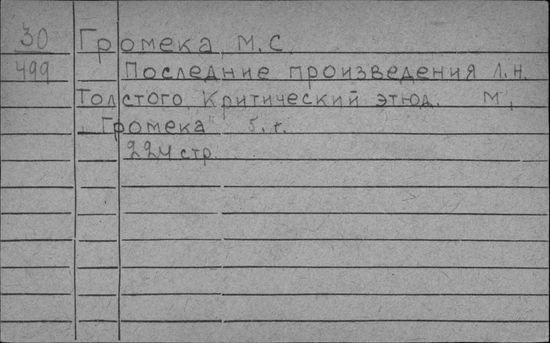 30 Громека, М.С.
499 Последние произведения Л.Н.
Толстого. Критический этюд. М.,
"Громека" б.г.
224 стр.